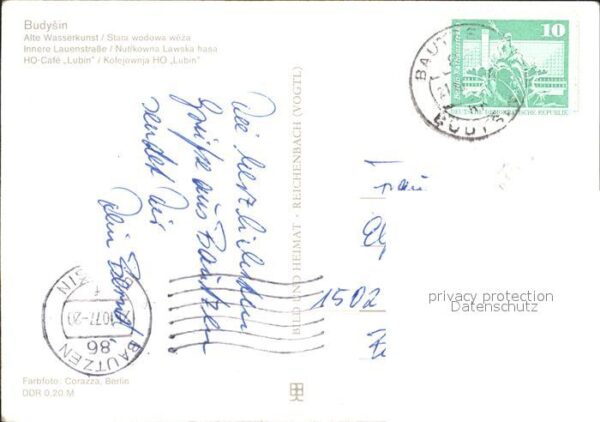 Budyšin
Alte Wasserkunst / Stara wodowa wěža
Innere Lauenstraße / Nutřkowna Lawska hasa
HO-Café „Lubin“ / Kofejownja HO „Lubin“
10
DEUTSCHE DEMOKRATISCHE REPUBLIK
BAUTZEN
BUDYŠIN
Die herzlichsten
Grüße aus Bautzen
sendet dir
Dein
BILD UND HEIMAT · REICHENBACH (VOGTL)
Frau
1502
privacy protection
Datenschutz
BAUTZEN
86
Farbfoto: Corazza, Berlin
DDR 0,20 M